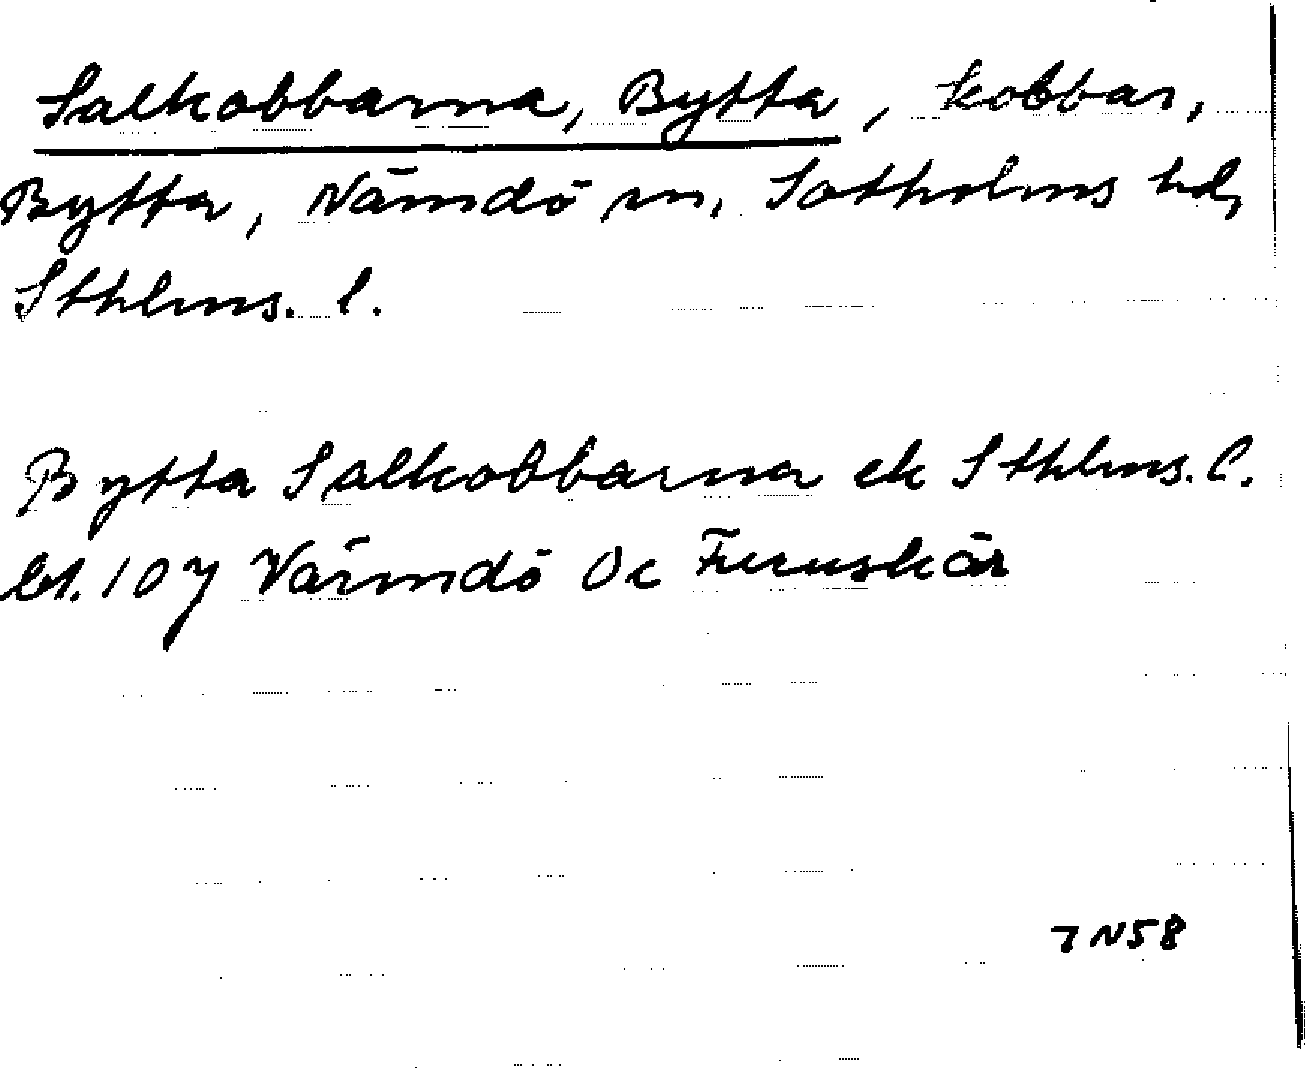 Salkobbarna, Bytta, kobbar,
Bytta, Nämdö sn, Sotholms hd,
Sthlms. l.
Bytta Salkobbarna ek Sthlms. l.
bl. 107 Värmdö Oc Frruskär
7 N58